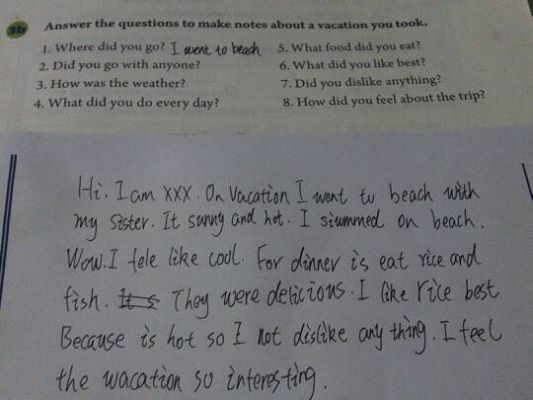 3b Answer the questions to make notes about a vacation you took.
1. Where did you go? I went to beach
2. Did you go with anyone?
3. How was the weather?
4. What did you do every day?
5. What food did you eat?
6. What did you like best?
7. Did you dislike anything?
8. How did you feel about the trip?
Hi. I am XXX. On Vacation I went to beach with
my Sister. It sunny and hot. I siwmmed on beach.
Wow. I fele like cool. For dinner is eat rice and
fish. They were delicious. I like rice best
Because is hot so I not dislike any thing. I feel
the wacation so interesting.